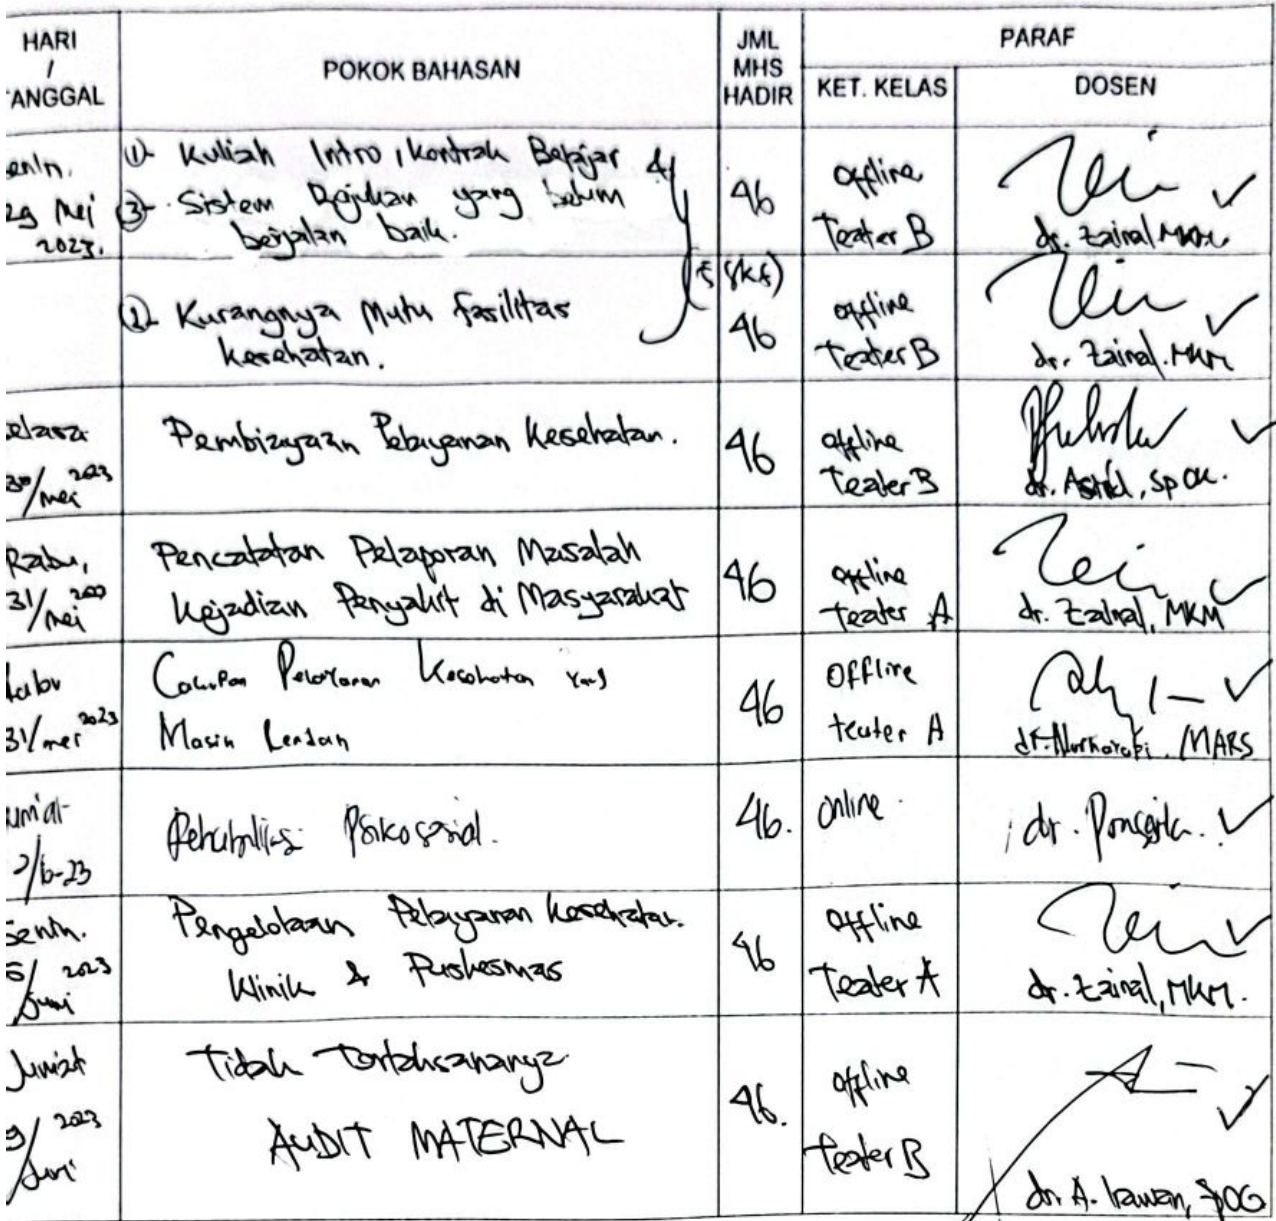 HARI
/
ANGGAL
POKOK BAHASAN
JML
MHS
HADIR
PARAF
KET. KELAS
DOSEN
enin.
29 Mei
2023.
① Kuliah Intro, Kontrak Belajar &
③ Sistem Rujukan yang belum
berjalan baik.
46
Offline
Teater B
dr. Zainal MKM
② Kurangnya Mutu fasilitas
kesehatan.
46
offline
Teater B
dr. Zainal. MKM
elasa
30/Mei 2023
Pembiayaan Pelayanan Kesehatan.
46
offline
Teater B
dr. Astrid, SpOk.
Rabu,
31/Mei
Pencatatan Pelaporan Masalah
Kejadian Penyakit di Masyarakat
46
offline
teater A
dr. Zainal, MKM
abu
31/mei 2023
Cakupan Pelayanan Kesehatan yang
Masih Rendah
46
Offline
teater A
MARS
um'at
2/6-23
Rehabilitasi Psikososial.
46.
Online
dr.
Senin.
5/Juni 2023
Pengelolaan Pelayanan Kesehatan
Klinik & Puskesmas
46
offline
Teater A
dr. Zainal, MKM.
Jumat
9/Juni 2023
Tidak Terlaksananya
AUDIT MATERNAL
46.
offline
teater B
dr. A. Irawan, SPOG